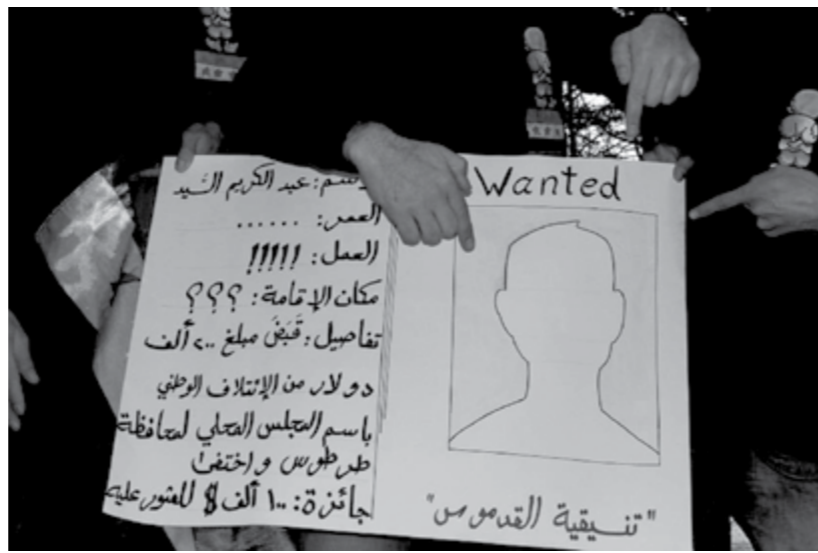 Wanted
الاسم: عبد الكريم السّيد
العمر: ......
العمل: !!!!!
مكان الإقامة: ؟؟؟
تفاصيل: قَبَضَ مبلغ ٢٠٠ ألف
دولار من الإئتلاف الوطني
باسم المجلس المحلي لمحافظة
طرطوس و إختفى
جائزة: ١٠٠ ألف $ للعثور عليه
"تنسيقية القدموس"